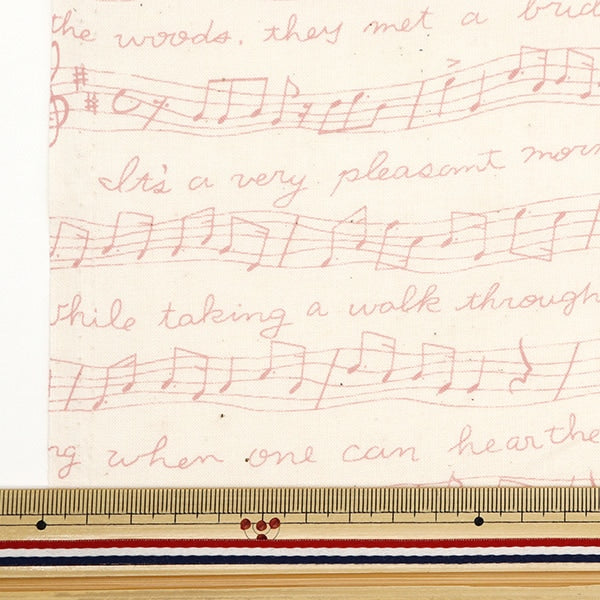 the woods. they met a
It's a very pleasant
while taking a walk through
when one can hear the